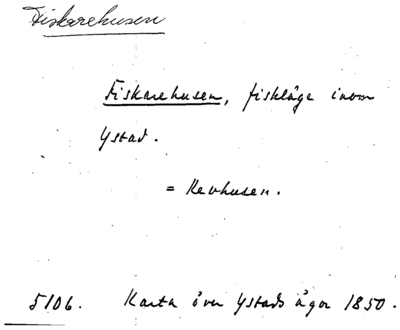 Fiskarehusen
Fiskarehusen, fiskläge inom
Ystad.
= Revhusen.
5106. Karta över Ystads ägor 1850.